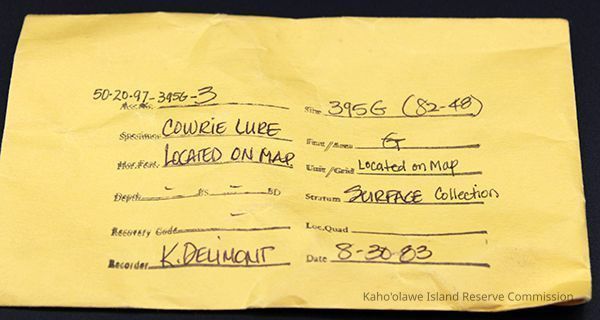 50-20-97-395G-3
Acc. No.
Site 395G (82-48)
Specimen COWRIE LURE
Feat/Area G
Hor. Feat. LOCATED ON MAP
Unit/Grid Located on Map
Depth - BS - BD
Stratum SURFACE Collection
Recovery Code -
Loc. Quad
Recorder K. DELIMONT
Date 8-30-83
Kaho'olawe Island Reserve Commission